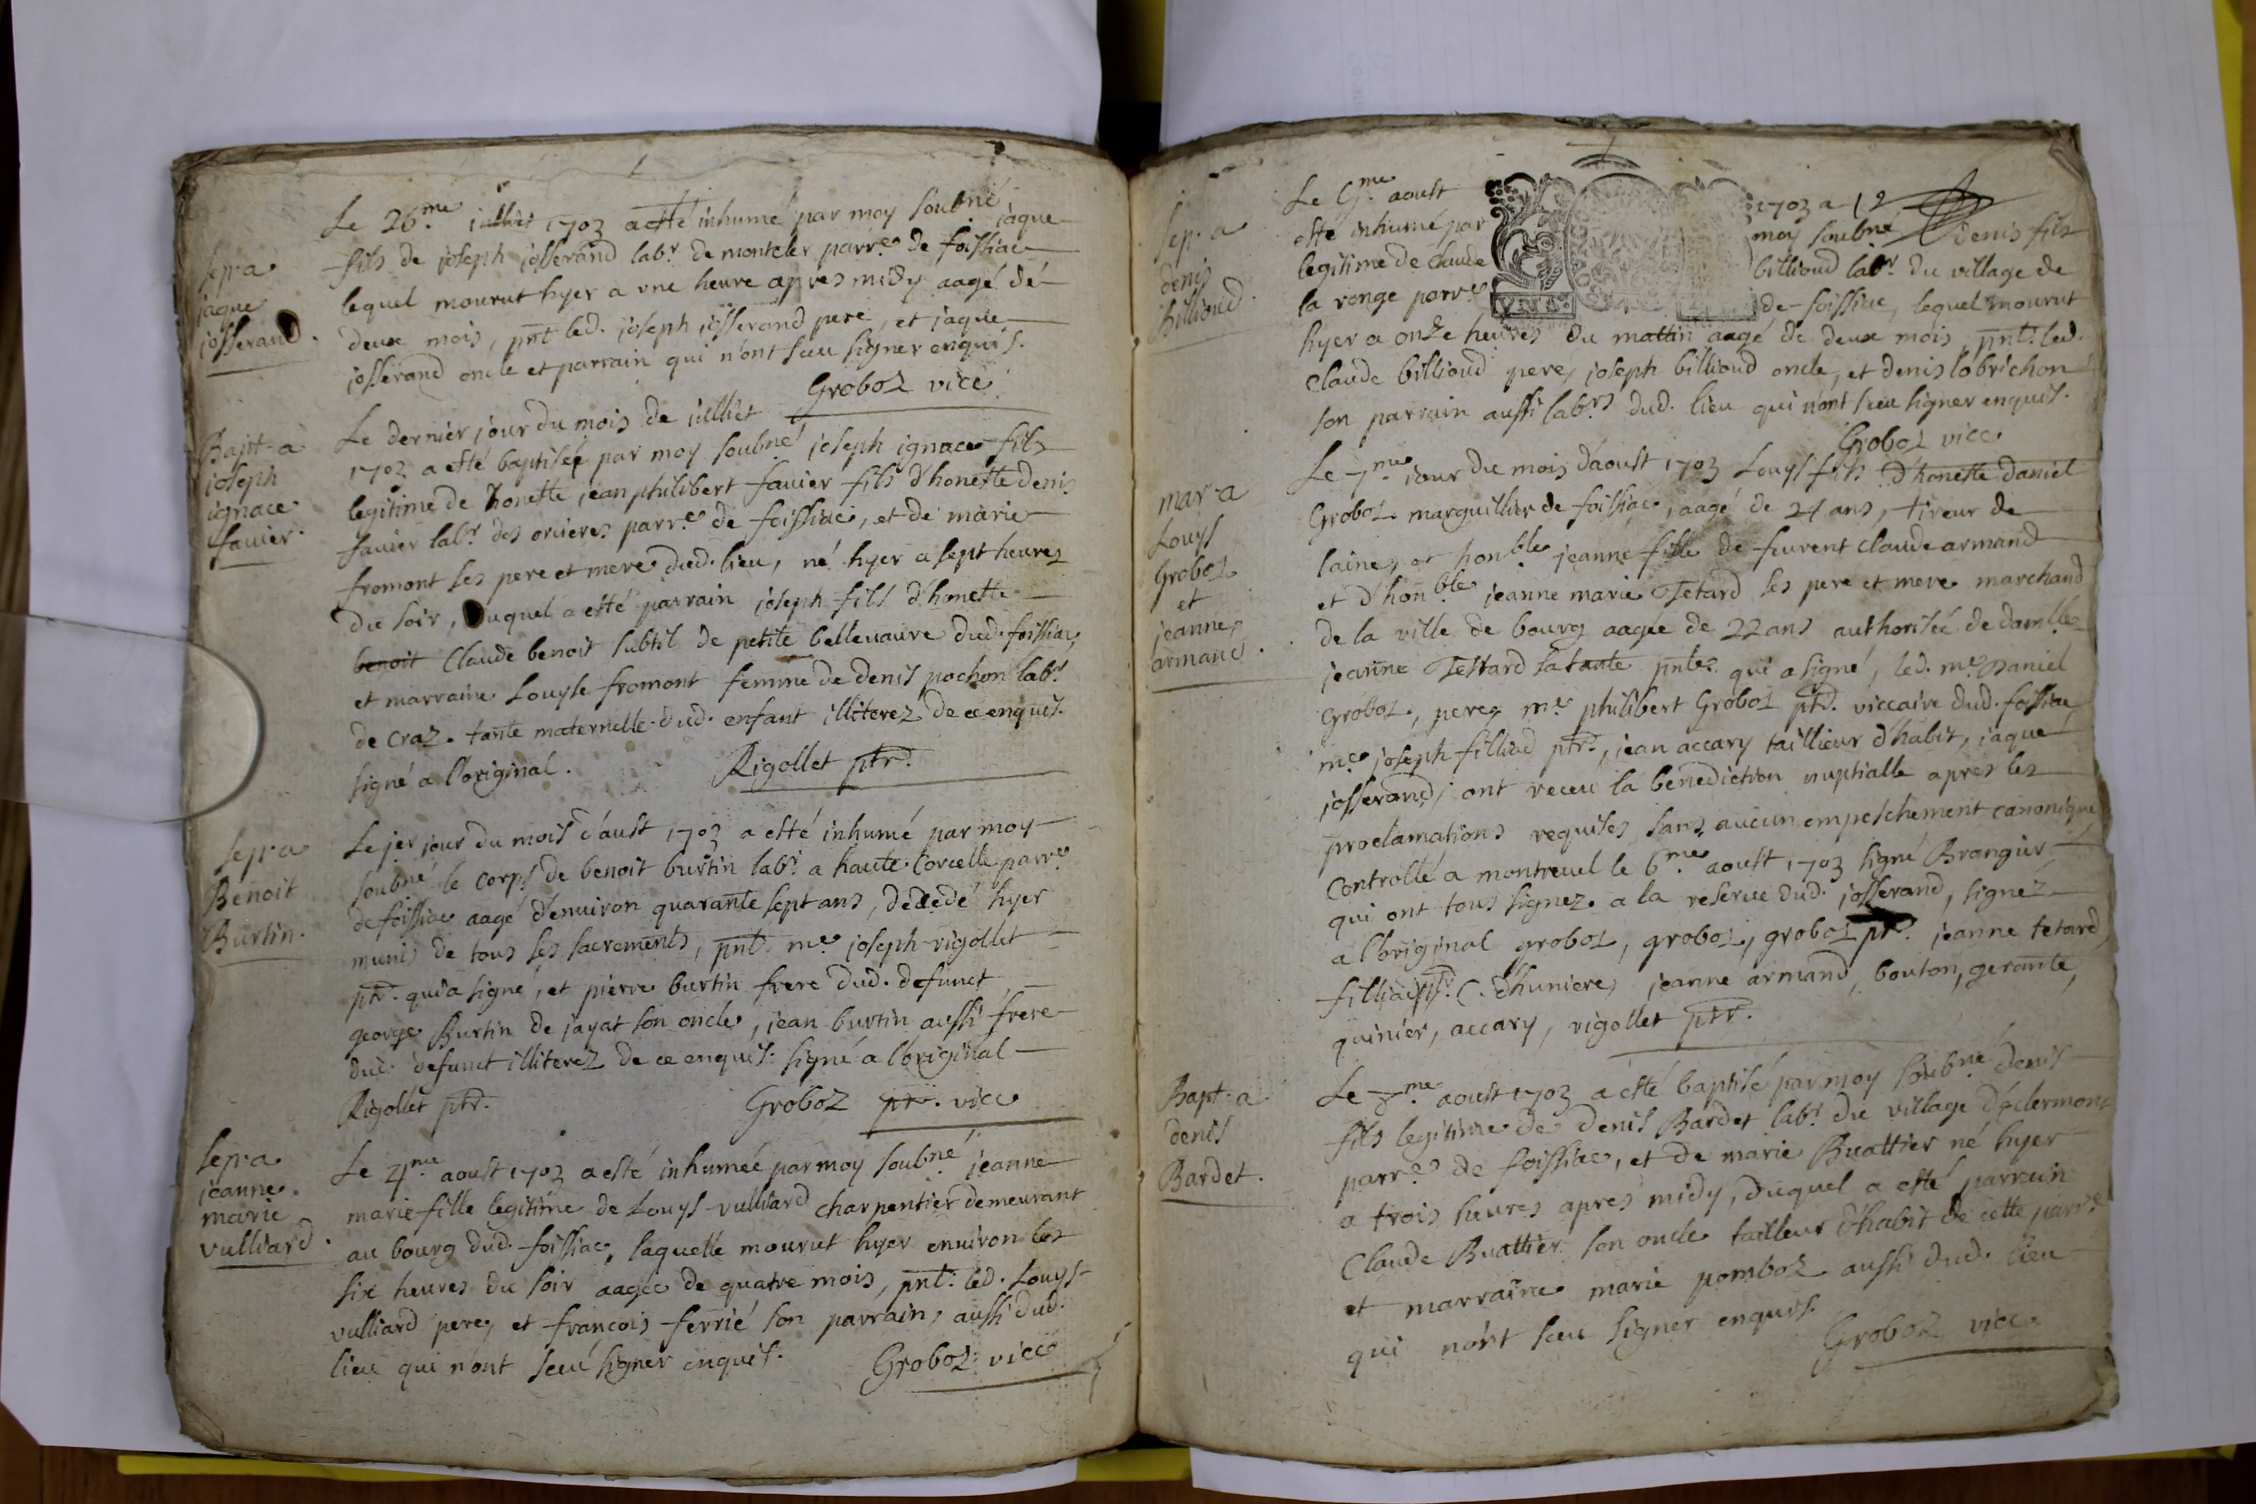 Le 26.me juillet 1703 a esté inhumé par moy soubné jaque
fils de joseph josserand labr. de monteler parr.e de foissiac
lequel mourut hyer a vne heure apres midy aagé de
deux mois, pnt led. joseph josserand pere, et jaque
josserand oncle et parrain qui n'ont sceu signer enquis.
Groboz vicc
sep. a
jaque
josserand.
Le dernier jour du mois de juilliet
1703 a esté baptisée par moy soubné joseph ignace fils
legitime de honeste jean philibert fauier fils d'honeste denis
fauier labr. des orcieres parr.e de foissiac, et de marie
fromont ses pere et mere dud. lieu, né hyer a sept heures
du soir, duquel a esté parrain joseph fils d'honeste
benoit Claude benoit subtil de petite belleuaure dud. foissiac,
et marraine Louyse fromont femme de denis pochon labr
de Craz. tante maternelle dud. enfant illiterez de ce enquis.
signé a l'original. Rigollet ptr.
Bapt. a
joseph
ignace
fauier.
Le jer jour du mois d'aust 1703 a esté inhumé par moy
soubné le corps de benoit burtin labr. a haute Corcelle parr.e
de foissiac aagé d'enuiron quarante sept ans, decedé hyer
munis de tous ses sacrements, pnt. m.e joseph rigollet
ptr. qui a signé, et pierre burtin frere dud. defunct,
george Burtin de jayat son oncle, jean burtin aussi frere
dud. defunct illiterez de ce enquis. signé a l'original
Rigollet ptr. Groboz ptr. vicc
sep. a
Benoit
Burtin.
Le 4.me aoust 1703 a esté inhumée par moy soubné jeanne
marie fille legitime de Louys vulliard charpentier demeurant
au bourg dud. foissiac, laquelle mourut hyer enuiron les
six heures du soir aagée de quatre mois, pnt. led. Louys
vulliard pere, et francois ferrié son parrain, aussi dud.
lieu qui n'ont sceu signer enquis. Groboz vicc
sep. a
jeanne
marie
vulliard.
Le 5.me aoust 1703 a 12
esté inhumé par moy soubné denis fils
legitime de claude billioud labr. du village de
la ronge parr.e de foissiac, lequel mourut
hyer a onze heures du mattin aagé de deux mois, pnt. led.
Claude billioud pere, joseph billioud oncle, et denis lobrichon
son parrain aussi labrs dud. lieu qui n'ont sceu signer enquis.
Groboz vicc
sep. a
denis
billioud.
Le 7.me jour du mois d'aoust 1703 Louys fils d'honeste daniel
Groboz marguillier de foissiac, aagé de 24 ans, tireur de
laine, et hon.ble jeanne fille de feurent claude armand
et d'hon.ble jeanne marie Tetard ses pere et mere marchand
de la ville de bourg aagée de 22 ans authorisée de dam.lle
jeanne Testard sa tante pnte. qui a signé, led. m.e Daniel
Groboz, pere, m.e philibert Groboz ptr. viccaire dud. foissiac
m.e joseph filliod ptr., jean accary taillieur d'habit, jaque
josserand, ont receu la benediction nuptialle apres les
proclamations requises sans aucun empeschement canonique
Controllé a montreuel le 6.me aoust 1703 signé Brangier
qui ont tous signez a la reserue dud. josserand, signez
a l'original groboz, groboz, groboz ptr. jeanne tetard,
filliod ptr. C. dhuniere, jeanne armand, bouton, gerante,
quinier, accary, rigollet ptr.
mar. a
Louys
Groboz
et
jeanne
armand.
Le 7.me aoust 1703 a esté baptisé par moy soubné denis
fils legitime de denis Bardet labr. du village d'éclermont
parr.e de foissiac, et de marie Buattier né hyer
a trois heures apres midy, duquel a esté parrain
Claude Buattier son oncle tailleur d'habit de cette parr.e
et marraine marie pomboz aussi dud. lieu
qui n'ont sceu signer enquis. Groboz vicc
Bapt. a
denis
Bardet.